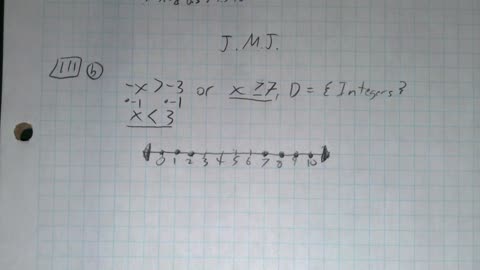 J.M.J.
III b
-x > -3 or x ≥ 7, D = {Integers}
·-1 ·-1
x < 3
0 1 2 3 4 5 6 7 8 9 10